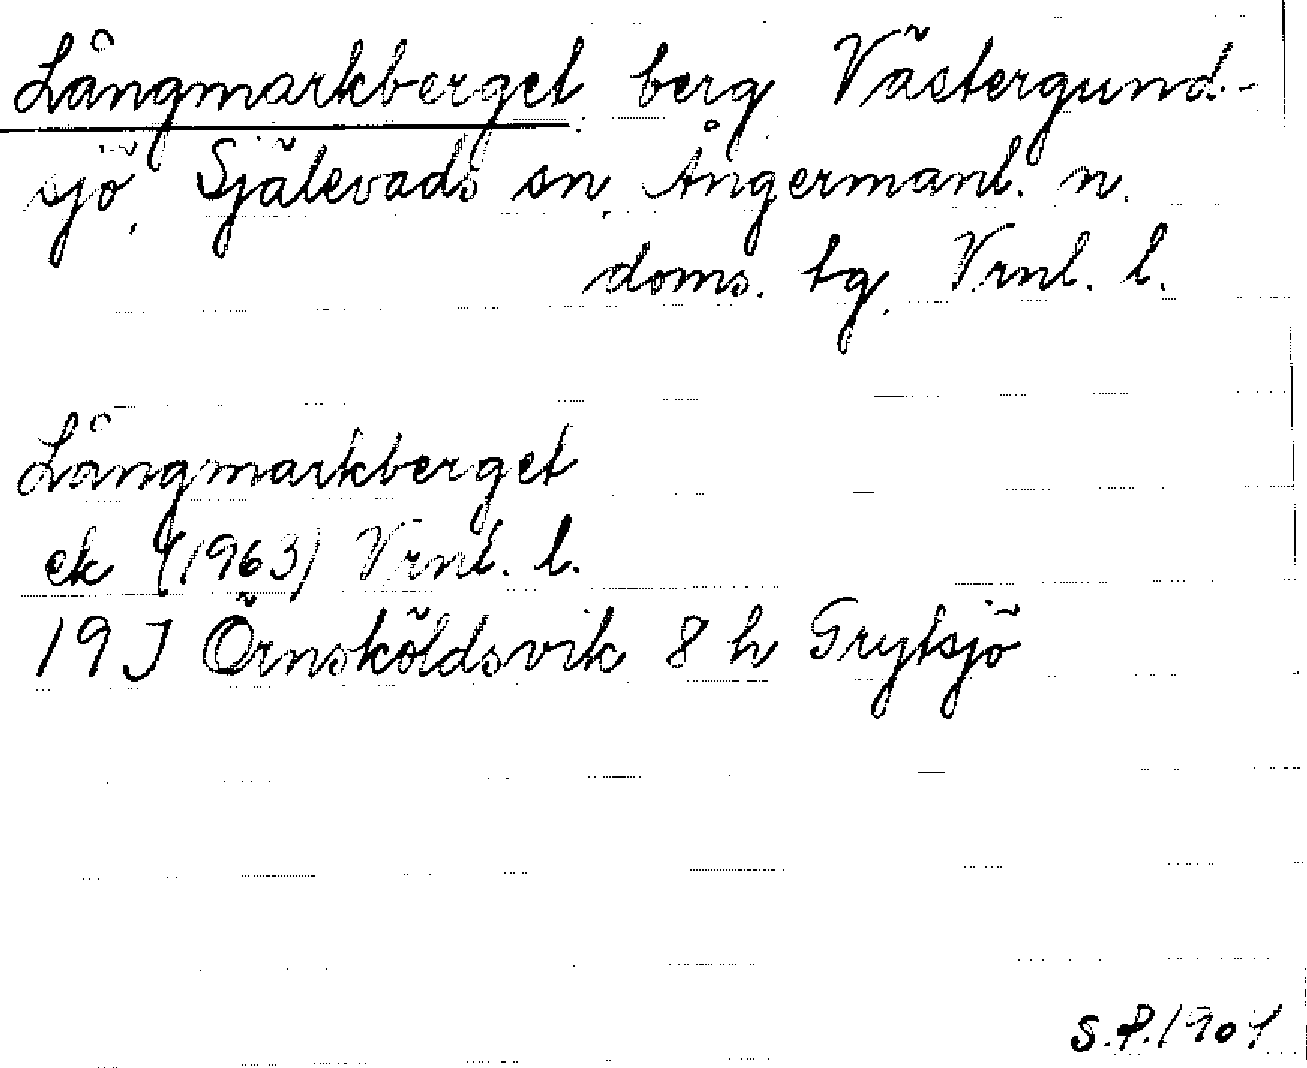 Långmarkberget berg Västergund-
sjö, Själevads sn, Ångermanl. n.
doms. tg, Vrnl. l.
Långmarkberget
ek (1963) Vrnl. l.
19 J Örnsköldsvik 8 h Grytsjö
S.P. 1901